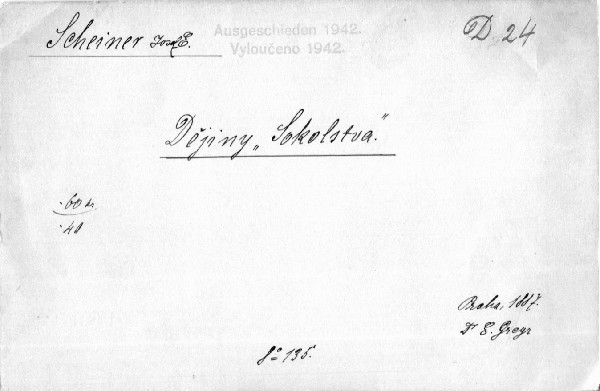 Scheiner Josef E.
Ausgeschieden 1942.
Vyloučeno 1942.
D 24
Dějiny „Sokolstva."
·60 kr.
·40
Praha, 1887.
Dr E. Gregr
8° 135.